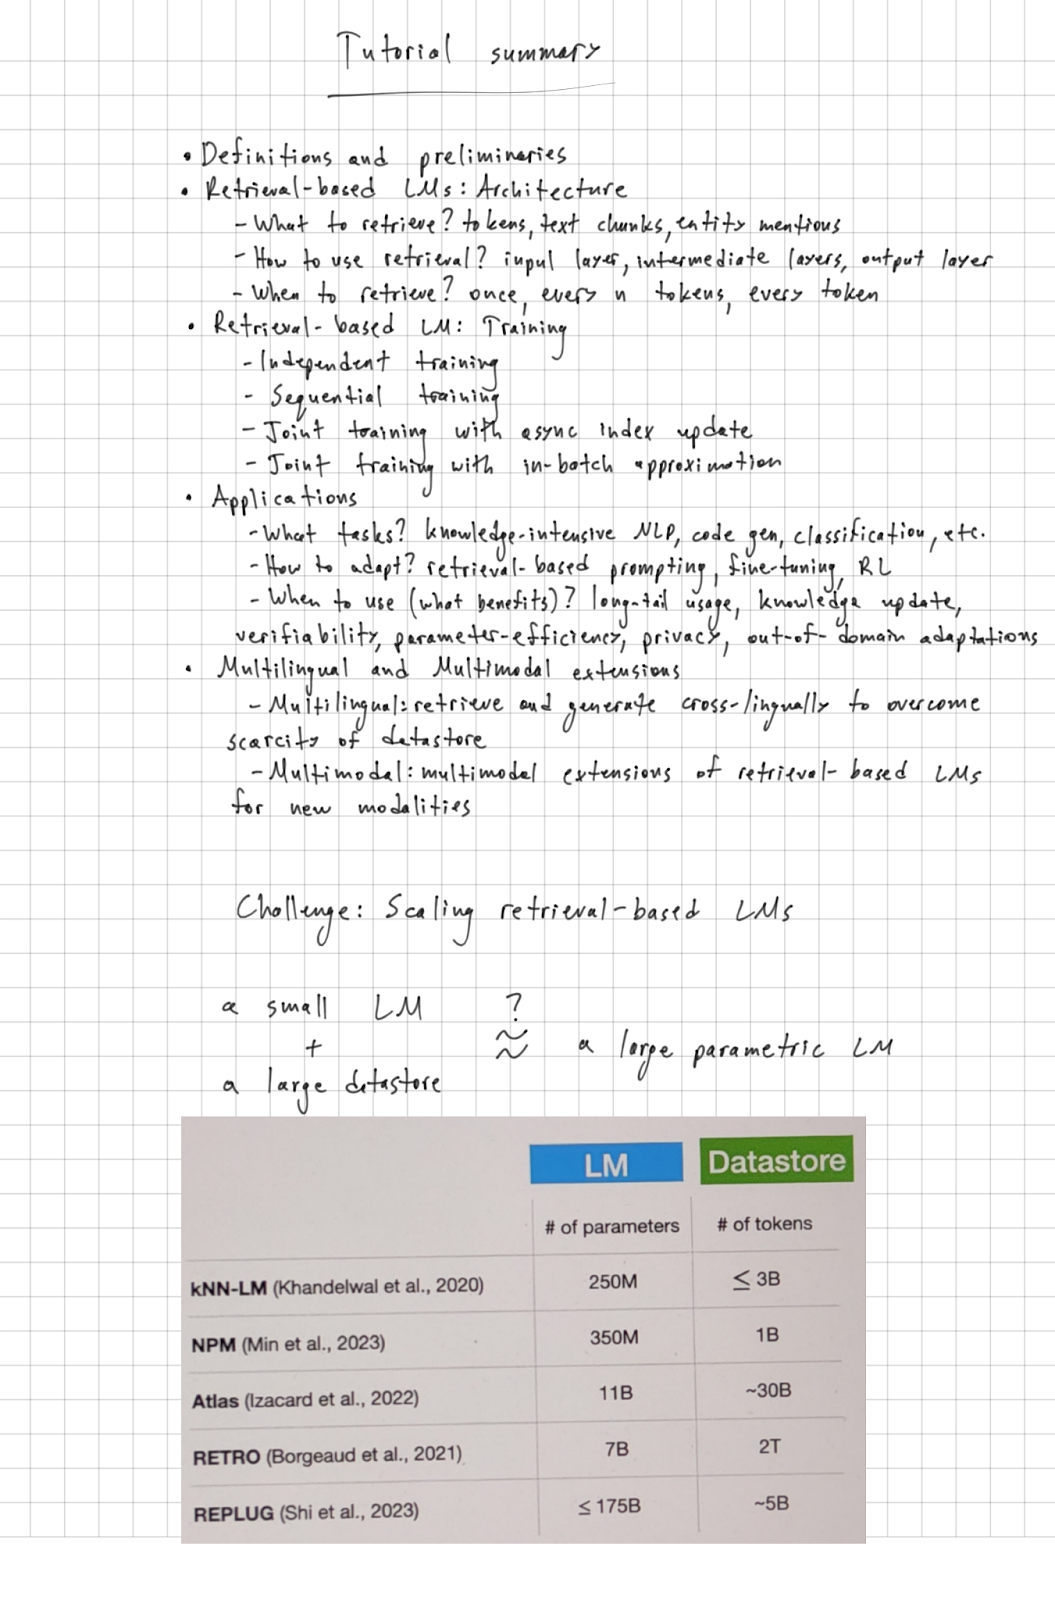 Tutorial summary
• Definitions and preliminaries
• Retrieval-based LMs: Architecture
- What to retrieve? tokens, text chunks, entity mentions
- How to use retrieval? input layer, intermediate layers, output layer
- When to retrieve? once, every n tokens, every token
• Retrieval-based LM: Training
- Independent training
- Sequential training
- Joint training with async index update
- Joint training with in-batch approximation
• Applications
- What tasks? knowledge-intensive NLP, code gen, classification, etc.
- How to adapt? retrieval-based prompting, fine-tuning, RL
- When to use (what benefits)? long-tail usage, knowledge update,
verifiability, parameter-efficiency, privacy, out-of-domain adaptations
• Multilingual and Multimodal extensions
- Multilingual: retrieve and generate cross-lingually to overcome
scarcity of datastore
- Multimodal: multimodal extensions of retrieval-based LMs
for new modalities
Challenge: Scaling retrieval-based LMs
a small LM ?
+ ≈ a large parametric LM
a large datastore
LM Datastore
# of parameters # of tokens
kNN-LM (Khandelwal et al., 2020) 250M ≤ 3B
NPM (Min et al., 2023) 350M 1B
Atlas (Izacard et al., 2022) 11B ~30B
RETRO (Borgeaud et al., 2021) 7B 2T
REPLUG (Shi et al., 2023) ≤ 175B ~5B